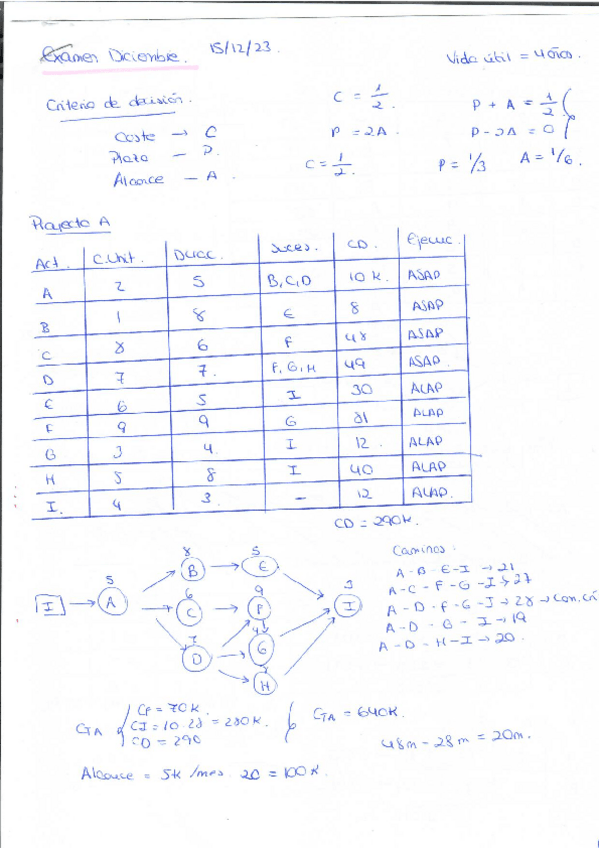 Examen Diciembre. 15/12/23.
Vida útil = 4 años.
Criterio de decisión.
Coste → C
Plazo — P.
Alcance — A
C = 1/2.
P = 2A
C = 1/2.
P + A = 1/2
P - 2A = 0
P = 1/3 A = 1/6
Proyecto A
Act. C.Unit. Durac. Suces. CD. Ejecuc.
A 2 5 B, C, D 10 k. ASAP
B 1 8 E 8 ASAP
C 8 6 F 48 ASAP
D 7 7. F, G, H 49 ASAP.
E 6 5 I 30 ALAP
F 9 9 G 81 ALAP
G 3 4. I 12. ALAP
H 5 8 I 40 ALAP
I. 4 3 – 12 ALAP.
CD = 290k.
I
5
A
8
B
5
E
6
C
9
F
7
D
4
G
H
3
I
Caminos:
A-B-E-I → 21
A-C-F-G-I → 27
A-D-F-G-I → 28 → cam. crí
A-D-G-I → 19
A-D-H-I → 20.
CTA
CF = 70k.
CI = 10.28 = 280k.
CD = 290
CTA = 640k.
48m - 28m = 20m.
Alcance = 5k /mes. 20 = 100k.